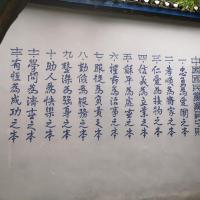 中國國民黨黨員守則
一忠勇為愛國之本
二孝順為齊家之本
三仁愛為接物之本
四信義為立業之本
五龢平為處世之本
六禮節為治事之本
七服從為負責之本
八勤儉為服務之本
九整潔為強身之本
十助人為快樂之本
十一學問為濟世之本
十二有恆為成功之本